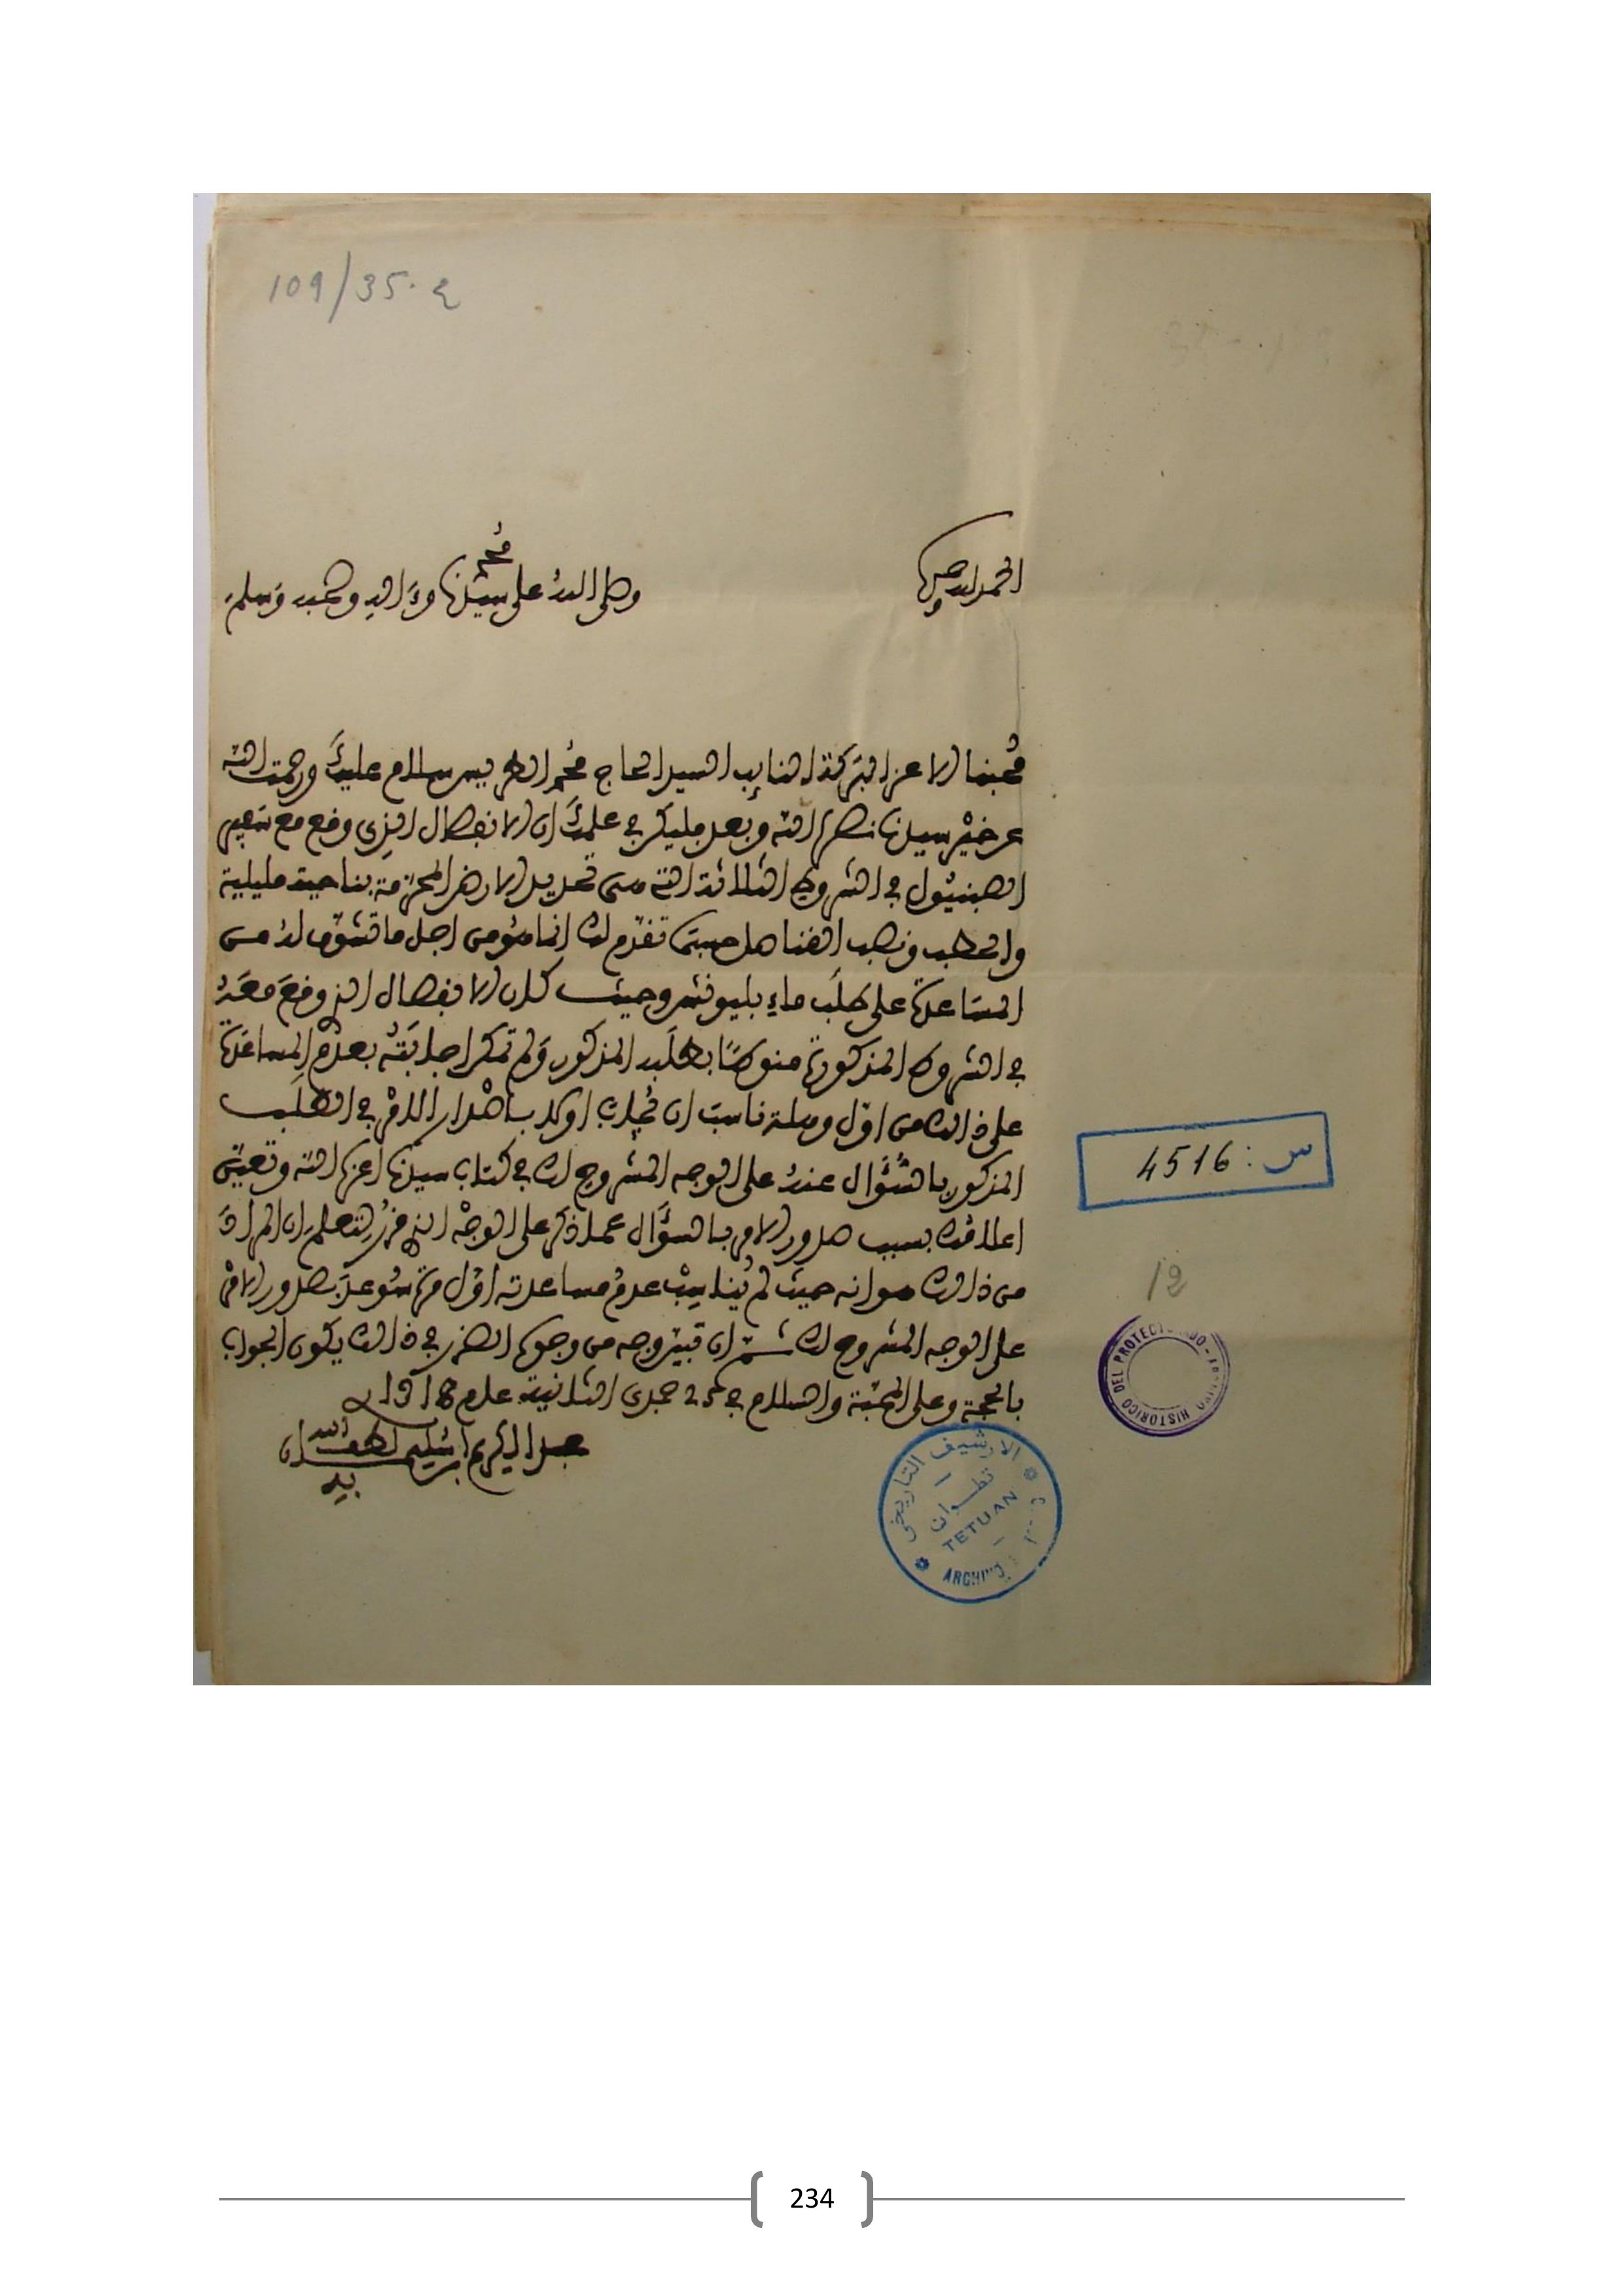 109/35. ع
الحمد لله وحده
وصلى الله على سيدنا محمد وءاله وصحبه وسلم
محبنا الاعز البركة النايب السيد الحاج محمد الطريس سلام عليك ورحمت الله
عن خير سيدنا نصره الله وبعد فليكن في علمك ان الانفصال الذي وقع مع سفير
الصبنيول في الشروط الثلاثة التي هي تحديد الارض المحترمة بناحية مليلية
والحطب ونصب القناصل حسبما تقدم لك انما هو من اجل ما تشوف له من
المساعدة على طلب ماء بليونش وحيث كان الانفصال الذي وقع معه
في الشروط المذكورة منوطا بطلبه المذكور ولم تمكن اجابته بعدم المساعدة
على ذالك من اول وهلة ناسب ان يجاب اوكد باصدار الامر في الطلب
المذكور بالسؤال عنه على الوجه المشروح لك في كتاب سيدنا اعزه الله وتعين
اعلامك بسبب صدور الامر بالسؤال عما ذكر على الوجه الذي قرر لتعلم ان المراد
من ذالك هو انه حيث لم يناسب عدم مساعدته اول مرة سوعد بصدور الامر
على الوجه المشروح لك ثم ان تبين وجه من وجوه الضرر في ذالك يكون الجواب
بالحجة وعلى المحبة والسلام في 25 جمدى الثانية عام
عبد الكريم ابن سليمان لطف الله به
س: 4516
12
DEL PROTECTORADO - HISTORICO
الارشيف التاريخي
تطوان
TETUAN
ARCHIVO
234